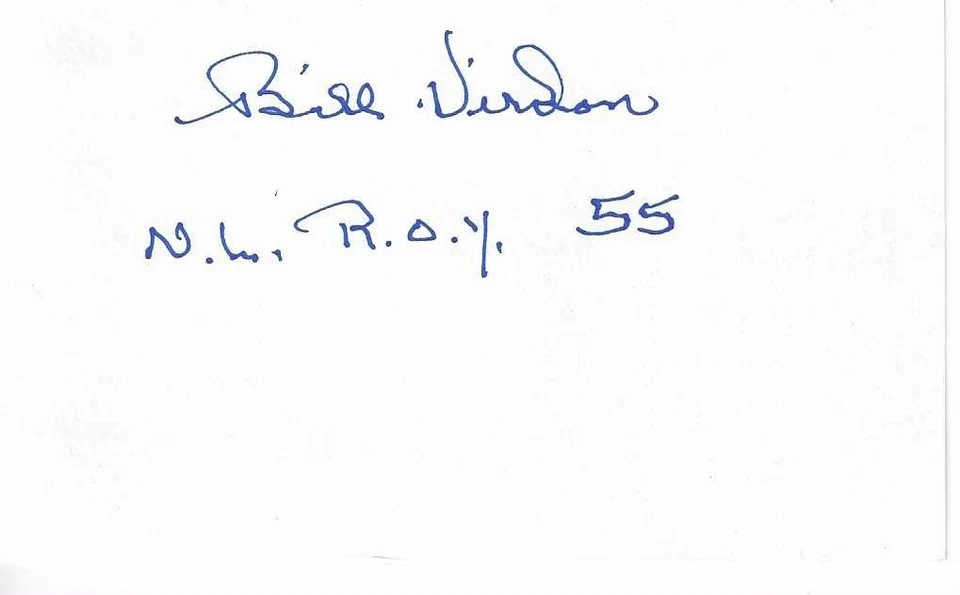 Bill Virdon
N.L. R.O.Y. 55